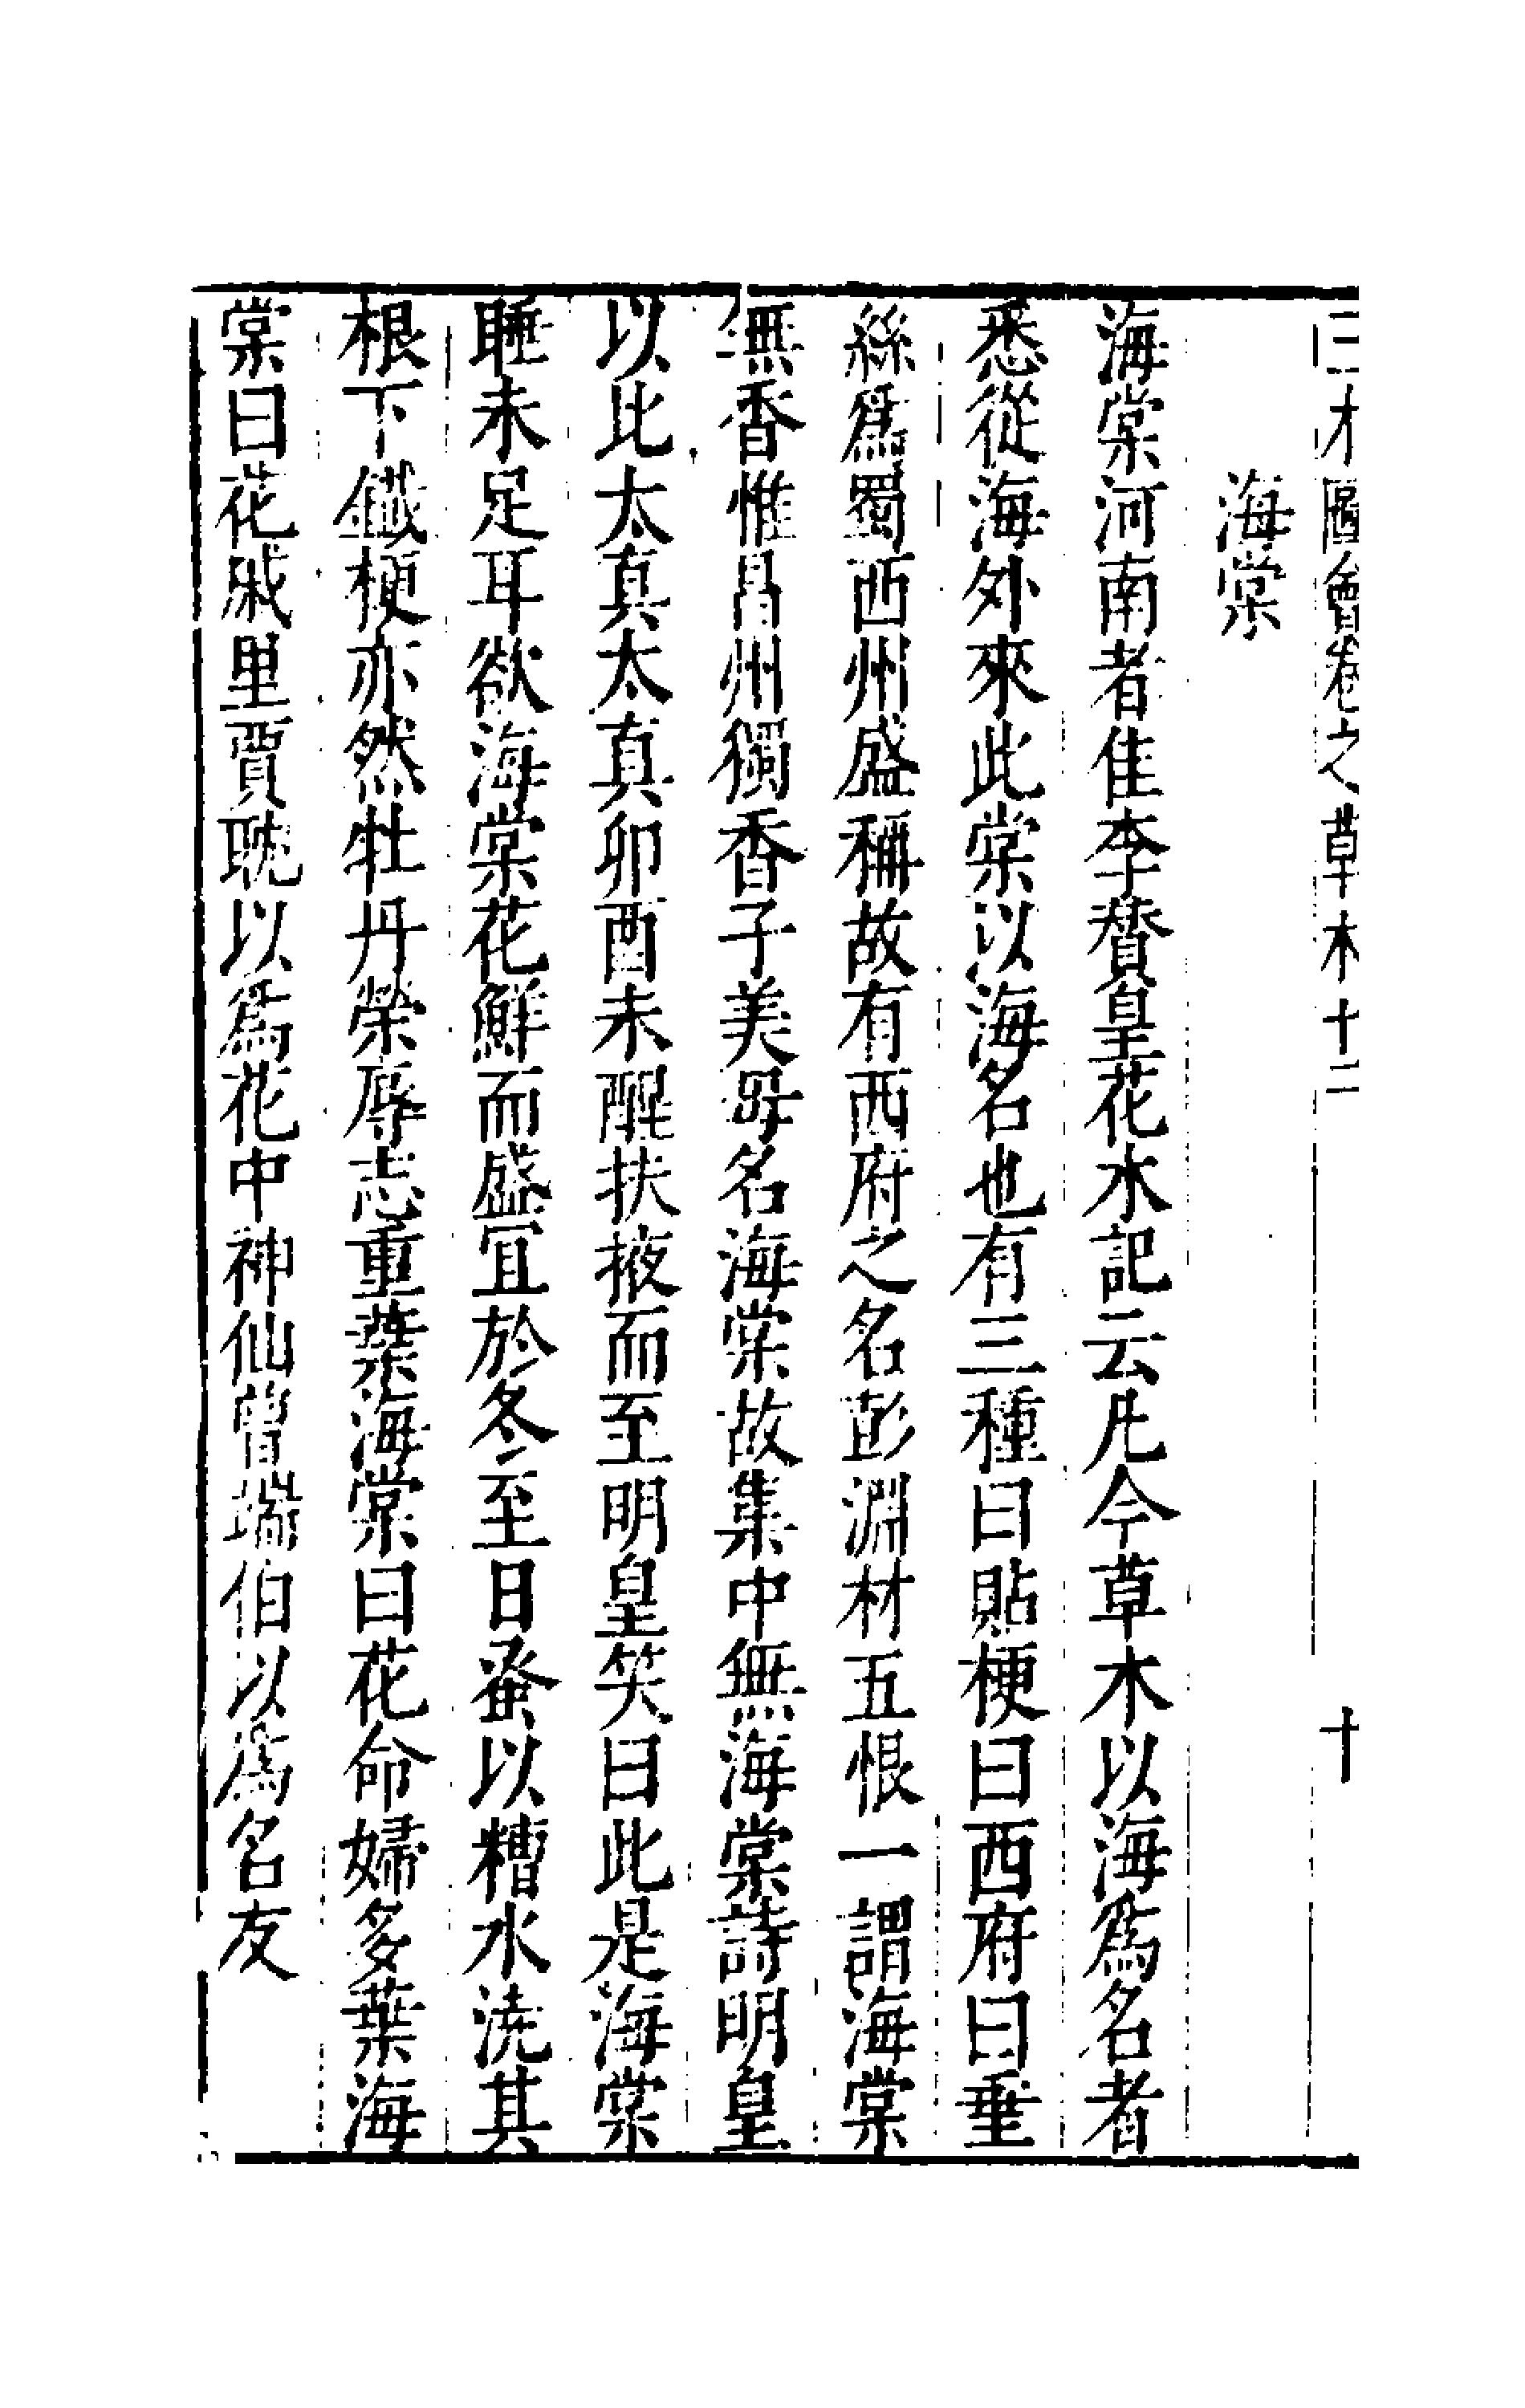 三才圖會卷之草木十二 十
海棠
海棠河南者佳李賛皇花水記云凡今草木以海爲名者
悉從海外來此棠以海名也有三種曰貼梗曰西府曰垂
絲爲蜀西州盛稱故有西府之名彭淵材五恨一謂海棠
無香惟昌州獨香子美母名海棠故集中無海棠詩明皇
以比太真太真卯酉未醒扶掖而至明皇笑曰此是海棠
睡未足耳欲海棠花鮮而盛宜於冬至日蚤以糟水澆其
根下鐵梗亦然牡丹榮辱志重葉海棠曰花命婦多葉海
棠曰花戚里賈耽以爲花中神仙曾瑞伯以爲名友